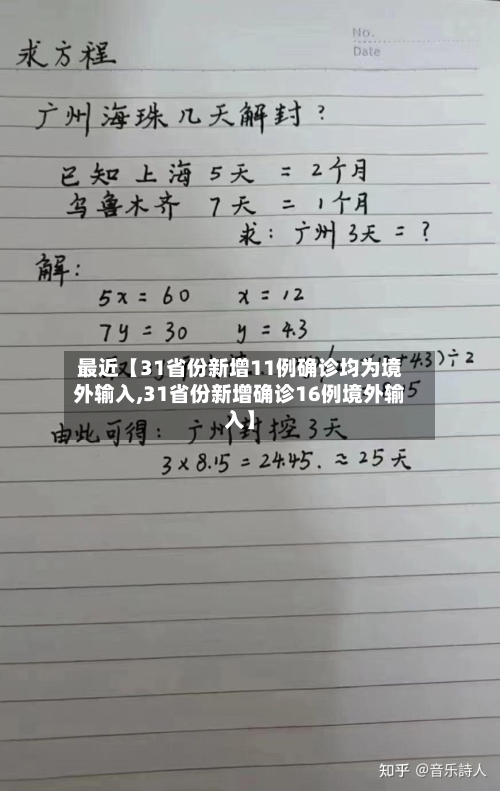 No.
Date
求方程
广州海珠几天解封?
已知上海5天 = 2个月
乌鲁木齐 7天 = 1个月
求: 广州3天 = ?
解:
5x = 60 x = 12
7y = 30 y = 4.3
4.3)÷2
最近【31省份新增11例确诊均为境
外输入,31省份新增确诊16例境外输
入】
由此可得: 广州封控3天
3×8.15 = 24.45. ≈25天
知乎 @音乐詩人